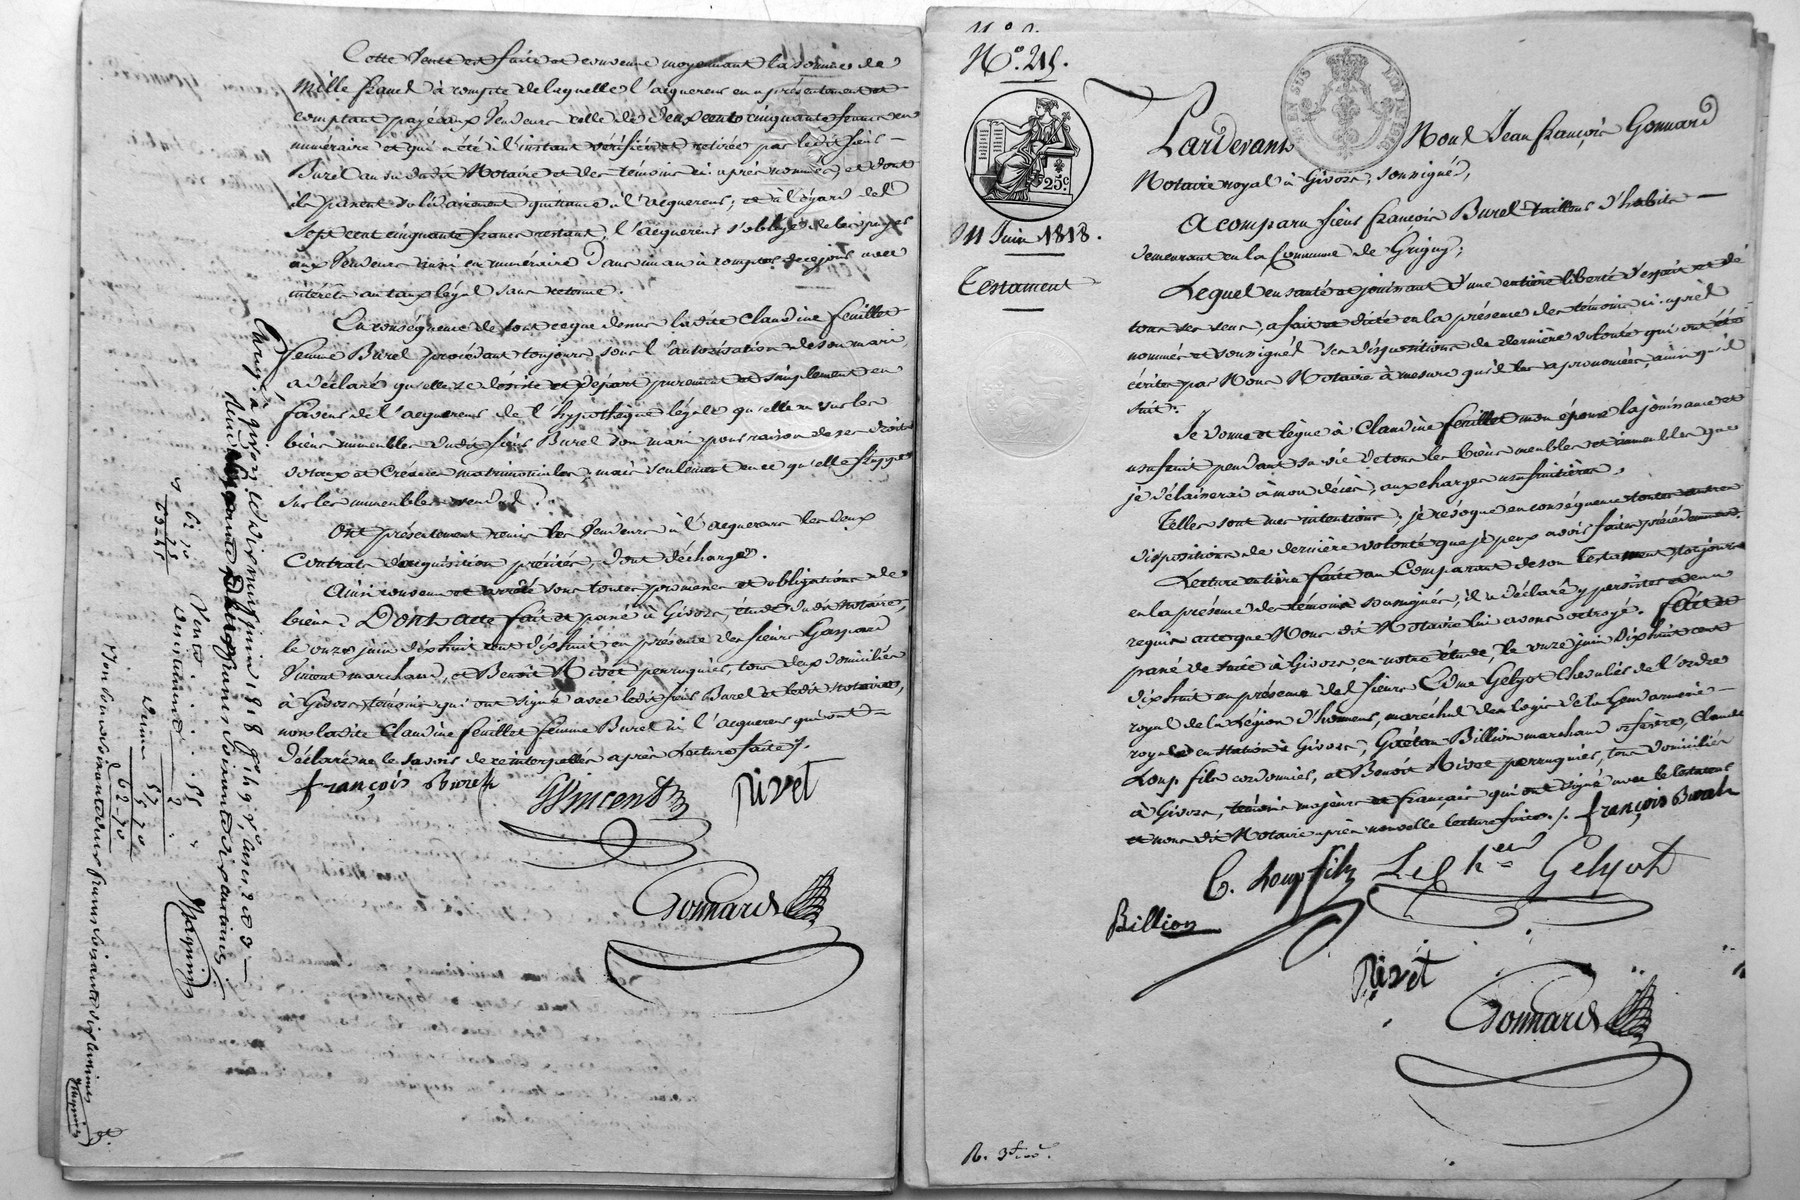 Cette vente est faite et convenue moyennant la somme de
Mille francs à compte de laquelle l'acquereur en a présentement et
comptant payé aux vendeurs celle de deux cents cinquante francs en
numéraire et qui a été à l'instant vérifiée et retirée par le dit sieur
Burel au vu dudit Notaire et des témoins ci après nommés, et dont
ils passent solidairement quittance à l'acquereur; et à l'égard des
sept cent cinquante francs restant, l'acquereur s'oblige de les payer
aux vendeurs aussi en numéraire dans un an à compter de ce jour avec
intérêts au taux légal sans retenue.
En conséquence de tout ce que dessus ladite Claudine feuillet
femme Burel procédant toujours sous l'autorisation de son mari,
a déclaré qu'elle se désiste et départ purement et simplement en
faveur de l'acquereur de l'hypothèque légale qu'elle a sur les
biens immeubles dudit sieur Burel son mari pour raison de ses droits
dotaux et créances matrimoniales, mais seulement en ce qu'elle frappe
sur les immeubles vendus.
Ont présentement remis les vendeurs à l'acquereur les deux
contrats d'acquisition précités, dont décharge.
Ainsi convenu et arrêté sous toutes promesses et obligations de
biens. Dont acte fait et passé à Givors, étude dudit notaire,
le onze juin dix huit cent dix huit en présence des sieurs Gaspard
Vincent marchand, et Benoît Rivet perruquier, tous deux domiciliés
à Givors, témoins qui ont signé avec ledit sieur Burel et ledit notaire,
non ladite Claudine feuillet femme Burel ni l'acquereur qui ont
déclaré ne le savoir de ce interpellés après lecture faite.
françois Burel GVincent Rivet
Gonnard
Enreg.é à givors le dix neuf juin 1818 f.o 149 v.o cases 2 et 3
6270
75
6345
Vente 55
désistement 2
57
5,70
62,70
Magnin
N.o 215.
25c
EN SUS
11 Juin 1818.
Testament
Pardevant Nous Jean françois Gonnard
Notaire royal à Givors, soussigné,
A comparu sieur françois Burel tailleur d'habits
demeurant en la Commune de Grigny;
Lequel en santé et jouissant d'une entière liberté d'esprit et de
tous ses sens, a fait et dicté en la présence des témoins ci-après
nommés et soussignés ses dispositions de dernière volonté qui ont été
écrites par Nous Notaire à mesure qu'il les a prononcées, ainsi qu'il
suit.
Je donne et lègue à Claudine feuillet mon épouse la jouissance et
usufruit pendant sa vie de tous les biens meubles et immeubles que
je délaisserai à mon décès, aux charges usufruitières.
Telles sont mes intentions, je révoque en conséquence toutes autres
dispositions de dernière volonté que je peux avoir faites précédemment.
Lecture entière faite au Comparant de son testament, toujours
en la présence des témoins soussignés, il a déclaré y persister et en a
requis acte que Nous dit Notaire lui avons octroyé. fait et
passé de suite à Givors, en notre étude, le onze juin dix huit cent
dix huit en présence des sieurs Edme Gelyot Chevalier de l'ordre
royal de la Légion d'honneur, maréchal des logis de la Gendarmerie
royale en station à Givors, Gaëtan Billion marchand orfèvre, Claude
Loup fils cordonnier, et Benoît Rivet perruquier, tous domiciliés
à Givors, témoins majeurs et français qui ont signé avec le testateur
et nous dit Notaire après nouvelle lecture faite. françois Burel
C. Loup fils Le ch.er Gelyot
Billion
Rivet
Gonnard